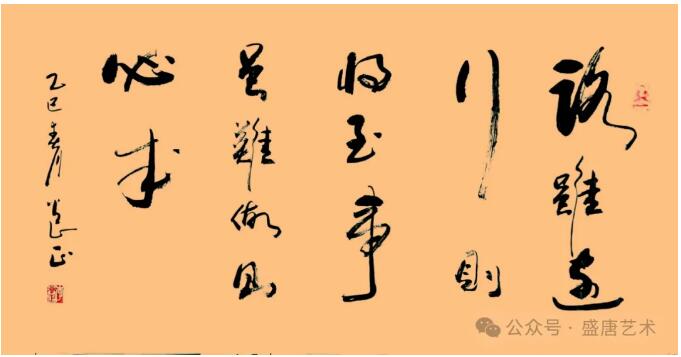 路雖遠
行則
将至事
虽難做则
必成
乙巳春月
公众号 · 盛唐艺术